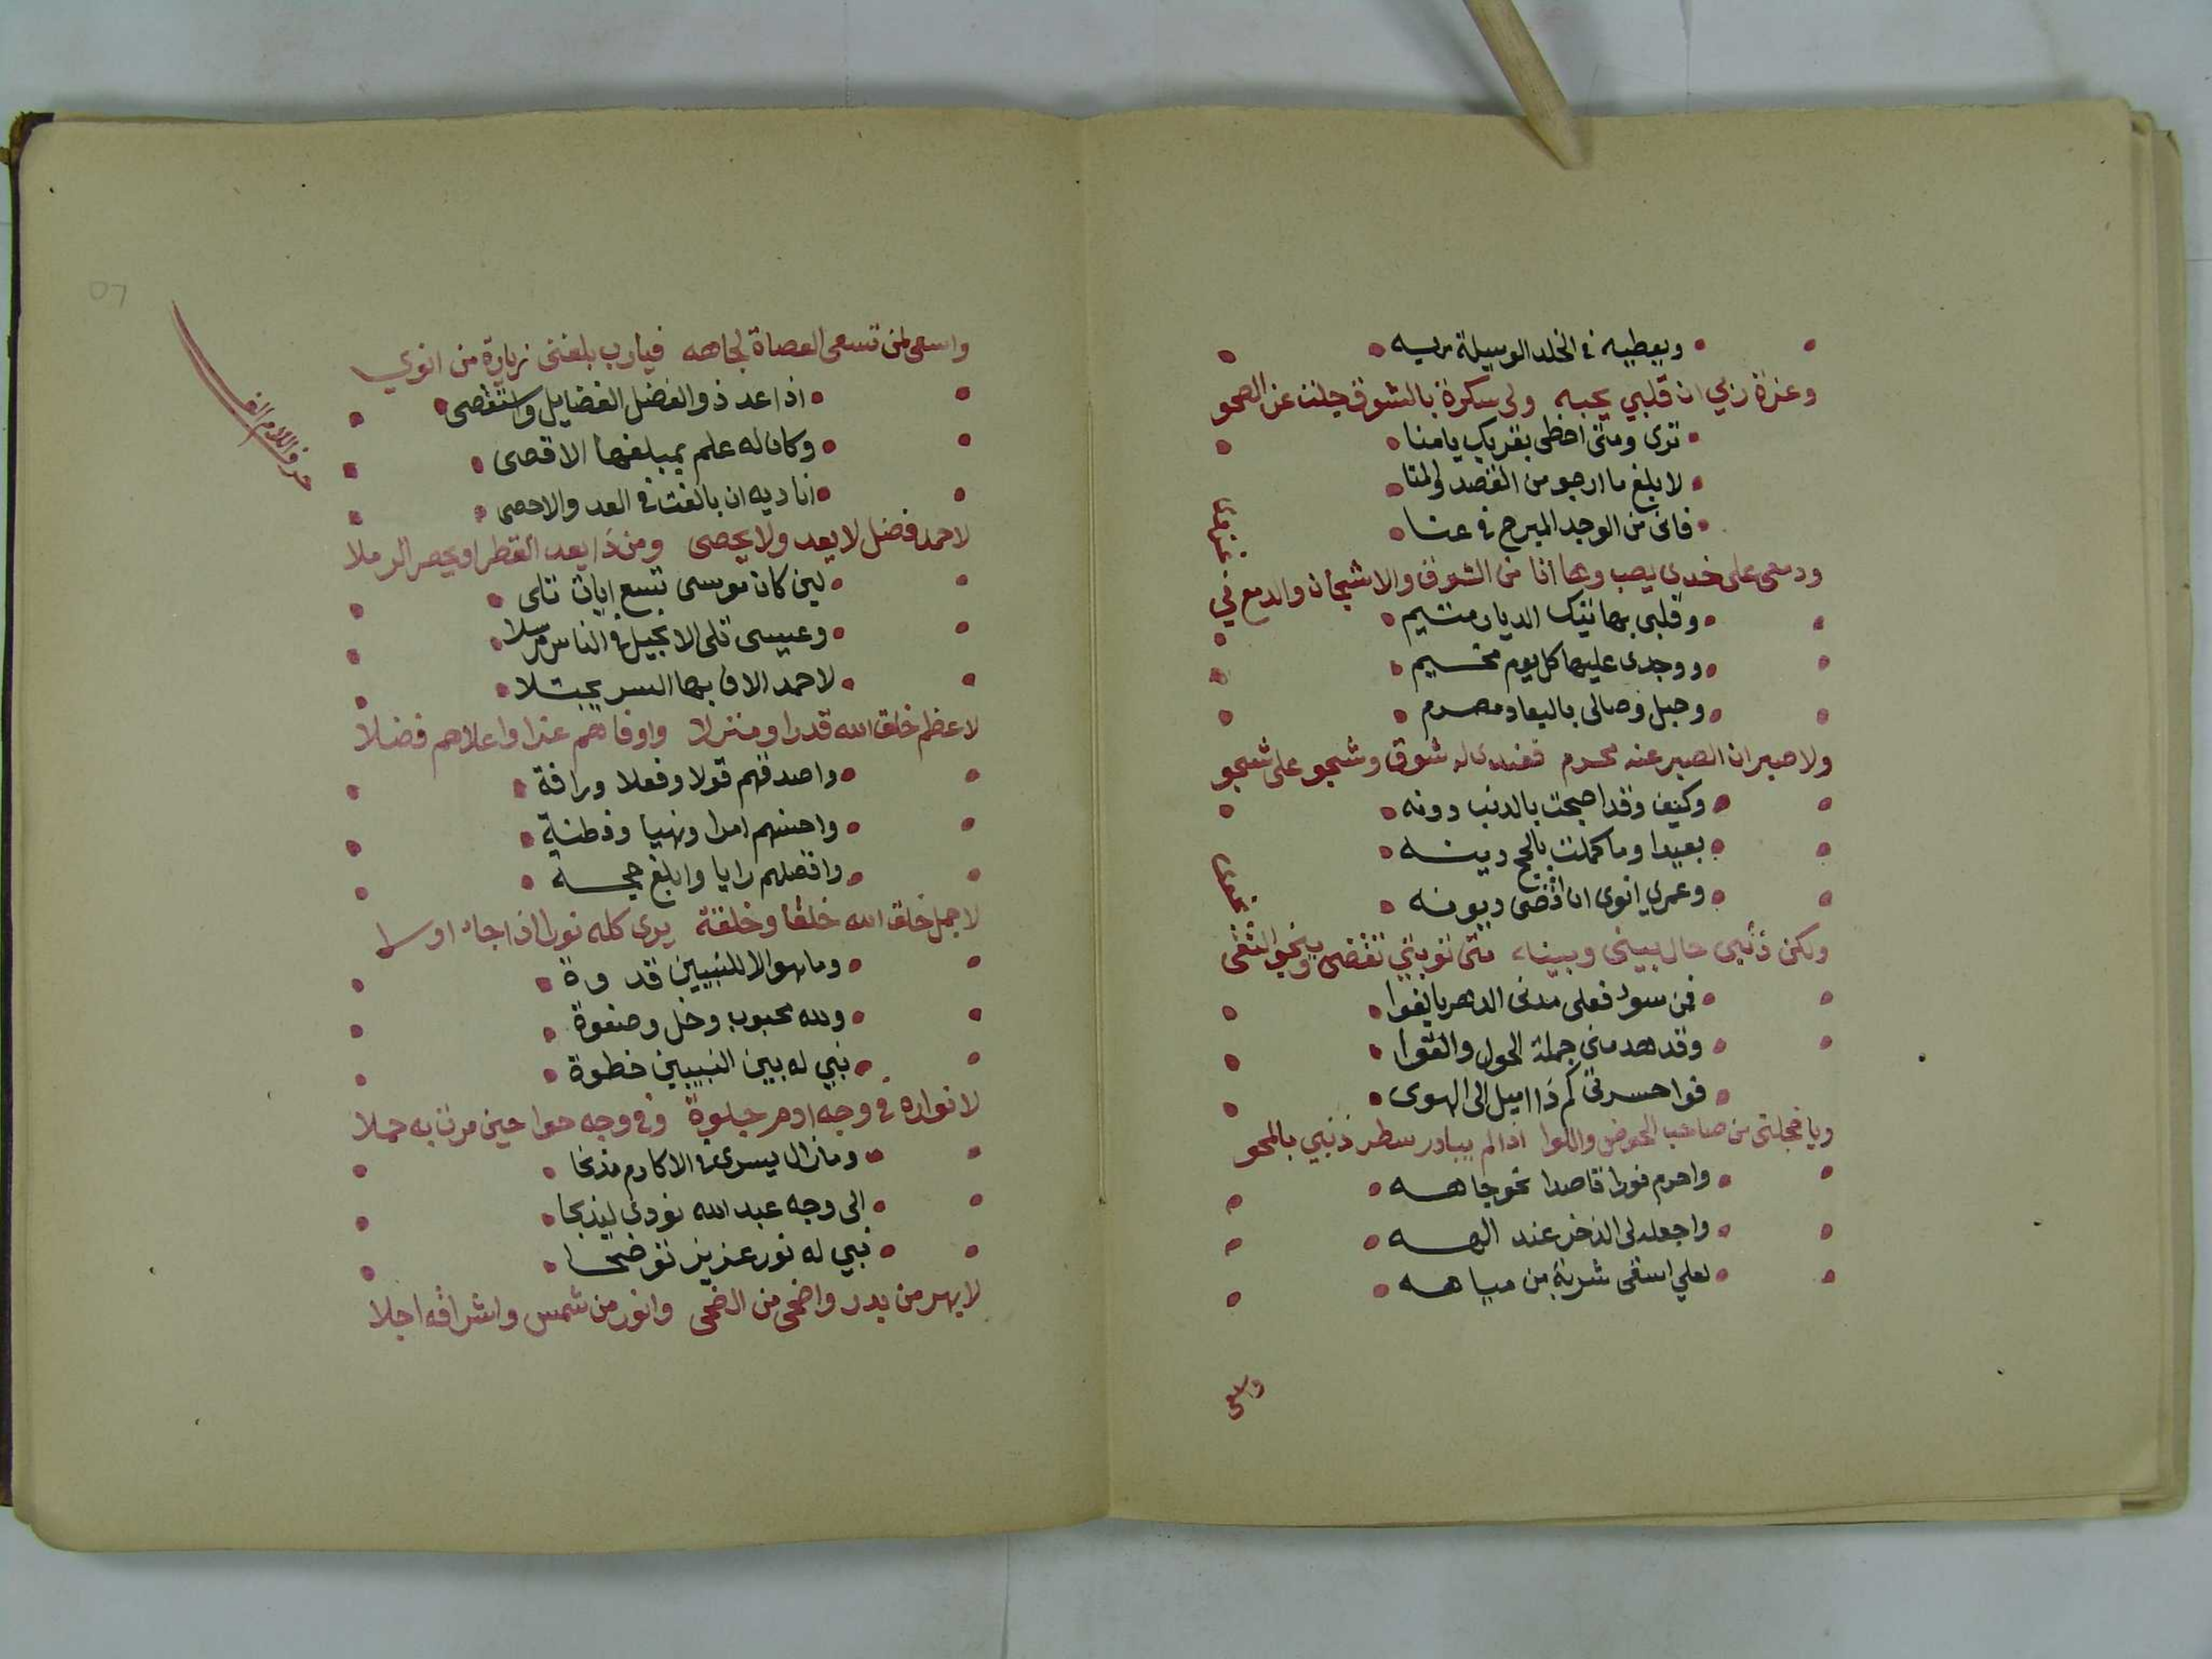 ويعطيه في الخلد الوسيلة ربه
وعزة ربي ان قلبي يحبه ولى سكرة بالشوق جلت عن الصحو
ترى ومتى احظى بقربك يا منا
لابلغ ما ارجو من القصد والمنا
فانى من الوجد المبرح في عنا
ودمعى على خدى يصب وها انا من الشوق والاشجان والدمع في
وقلبى بهاتيك الديار متيم
ووجدى عليها كل يوم مخيم
وحبل وصالى بالبعاد مصرم
ولا صبر ان الصبر عنه محرم فعندى له شوق وشجو على شجو
وكيف وقد اصبحت بالذنب دونه
بعيدا وما كملت بالحج دينه
وعمري انوى ان اقضى ديونه
ولكن ذنبي حال بينى وبينه متى توبتي تقضى وينحو التقى
فمن سوء فعلى مدنى الدهر بالغوا
وقد هد منى جملة الحول والقوا
فواحسرتى كم ذا اميل الى الهوى
ويا خجلتى من صاحب الحوض واللوا اذا لم يبادر سطر ذنبي بالمحو
واحرم فورا قاصدا نحو جاهه
واجعله لى الذخر عند الهه
لعلي اسقى شربة من مياهه
واسعى
واسعى لمن تسعى العصاة لجاهه فيارب بلغنى زيارة من انوي
حرف اللام الف
اذا عد ذو الفضل الفضايل واستقصى
وكان له علم بمبلغها الاقصى
اناديه ان بالغت في العد والاحصى
لاحمد فضل لا يعد ولا يحصى ومن ذا يعد القطر او يحصر الرملا
لين كان موسى بتسع ايات تلى
وعيسى تلى الانجيل في الناس مرسلا
لاحمد الاف بها السر يجتلا
لاعظم خلق الله قدرا ومنزلا واوفاهم عزا واعلاهم فضلا
واصدقهم قولا وفعلا ورافة
واحسنهم امرا ونهيا وفطنة
وافضلهم رايا وابلغ حجة
لاجمل خلق الله خلقا وخلقة يرى كله نورا اذا جاء او ولا
وما هو الا للنبيين قدوة
ولله محبوب وخل وصفوة
نبي له بين النبيين خطوة
لانواره في وجه ادم جلوة وفي وجه حوا حين مرت به حملا
وما زال يسرى في الاكارم مذ نحا
الى وجه عبد الله نودي ليذبحا
نبي له نور عزيز توضحا
لابهر من بدر واضحى من الضحى وانور من شمس واشراقه اجلا